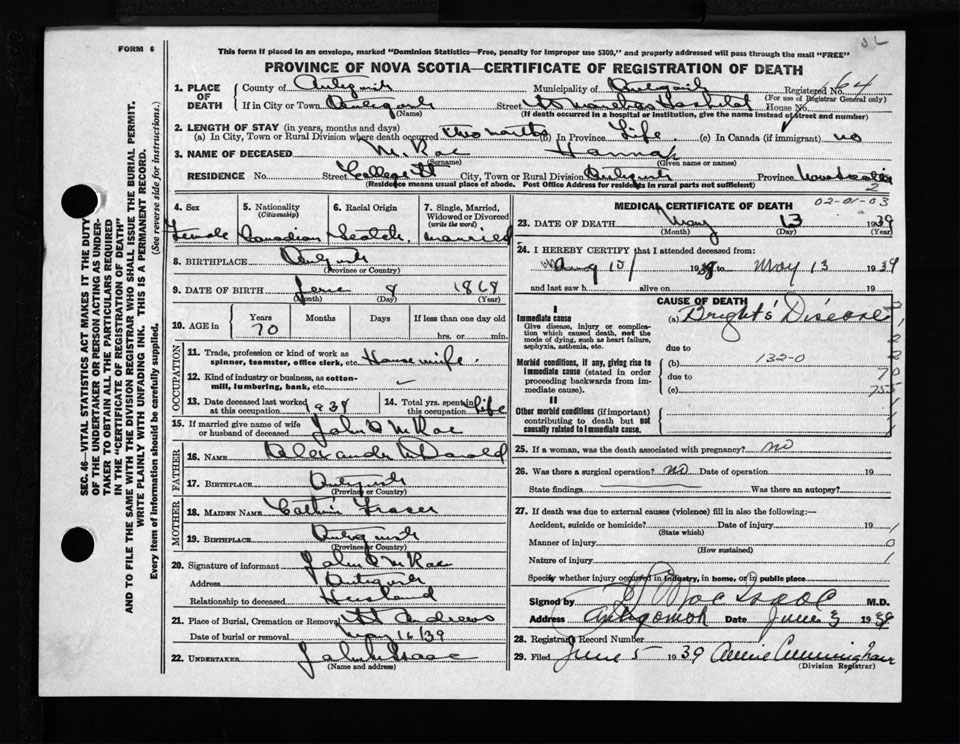 FORM 6
This form if placed in an envelope, marked "Dominion Statistics—Free, penalty for improper use $300," and properly addressed will pass through the mail "FREE"
PROVINCE OF NOVA SCOTIA—CERTIFICATE OF REGISTRATION OF DEATH
SEC. 46—VITAL STATISTICS ACT MAKES IT THE DUTY
OF THE UNDERTAKER OR PERSON ACTING AS UNDER-
TAKER TO OBTAIN ALL THE PARTICULARS REQUIRED
IN THE "CERTIFICATE OF REGISTRATION OF DEATH"
AND TO FILE THE SAME WITH THE DIVISION REGISTRAR WHO SHALL ISSUE THE BURIAL PERMIT.
WRITE PLAINLY WITH UNFADING INK. THIS IS A PERMANENT RECORD.
Every item of information should be carefully supplied. (See reverse side for instructions.)
1. PLACE OF DEATH County of Antigonish Municipality of Antigonish Registered No. 64
(For use of Registrar General only)
If in City or Town Antigonish Street St Marthas Hospital House No.
(Name) (If death occurred in a hospital or institution, give the name instead of street and number)
2. LENGTH OF STAY (in years, months and days)
(a) In City, Town or Rural Division where death occurred two months (b) In Province Life (c) In Canada (if immigrant) no
3. NAME OF DECEASED McRae Hannah
(Surname) (Given name or names)
RESIDENCE No. Street College St City, Town or Rural Division Antigonish Province Nova Scotia
(Residence means usual place of abode. Post Office Address for residents in rural parts not sufficient) 2
4. Sex 5. Nationality (Citizenship) 6. Racial Origin 7. Single, Married, Widowed or Divorced (write the word)
Female Canadian Scotch married
8. BIRTHPLACE Antigonish
(Province or Country)
9. DATE OF BIRTH June 8 1868
(Month) (Day) (Year)
10. AGE in Years Months Days If less than one day
70 hrs. or min.
OCCUPATION
11. Trade, profession or kind of work as spinner, teamster, office clerk, etc. Housewife
12. Kind of industry or business, as cotton-mill, lumbering, bank, etc.
13. Date deceased last worked at this occupation 1938 14. Total yrs. spent in this occupation Life
15. If married give name of wife or husband of deceased John D McRae
FATHER
16. NAME Alexander McDonald
17. BIRTHPLACE Antigonish
(Province or Country)
MOTHER
18. MAIDEN NAME Fraser
19. BIRTHPLACE Antigonish
(Province or Country)
20. Signature of informant John D McRae
Address Antigonish
Relationship to deceased Husband
21. Place of Burial, Cremation or Removal St Andrews
Date of burial or removal May 16/39
22. UNDERTAKER
(Name and address)
MEDICAL CERTIFICATE OF DEATH 02-01-03
23. DATE OF DEATH May 13 1939
(Month) (Day) (Year)
24. I HEREBY CERTIFY that I attended deceased from:
Aug 10/ 1938 to May 13 1939
and last saw h alive on 19
CAUSE OF DEATH
I
Immediate cause (a) Bright's Disease
Give disease, injury or complication which caused death, not the mode of dying, such as heart failure, asphyxia, asthenia, etc.
due to
Morbid conditions, if any, giving rise to immediate cause (stated in order proceeding backwards from immediate cause).
(b) 132-0
due to
(c)
II
Other morbid conditions (if important) contributing to death but not causally related to immediate cause.
25. If a woman, was the death associated with pregnancy? no
26. Was there a surgical operation? no Date of operation 19
State findings Was there an autopsy?
27. If death was due to external causes (violence) fill in also the following:—
Accident, suicide or homicide? Date of injury 19
(State which)
Manner of injury 0
(How sustained)
Nature of injury 1
Specify whether injury occurred in industry, in home, or in public place
Signed by MacIsaac M.D.
Address Antigonish Date June 3 1939
28. Registrar's Record Number
29. Filed June 5 1939 Annie Cunningham
(Division Registrar)